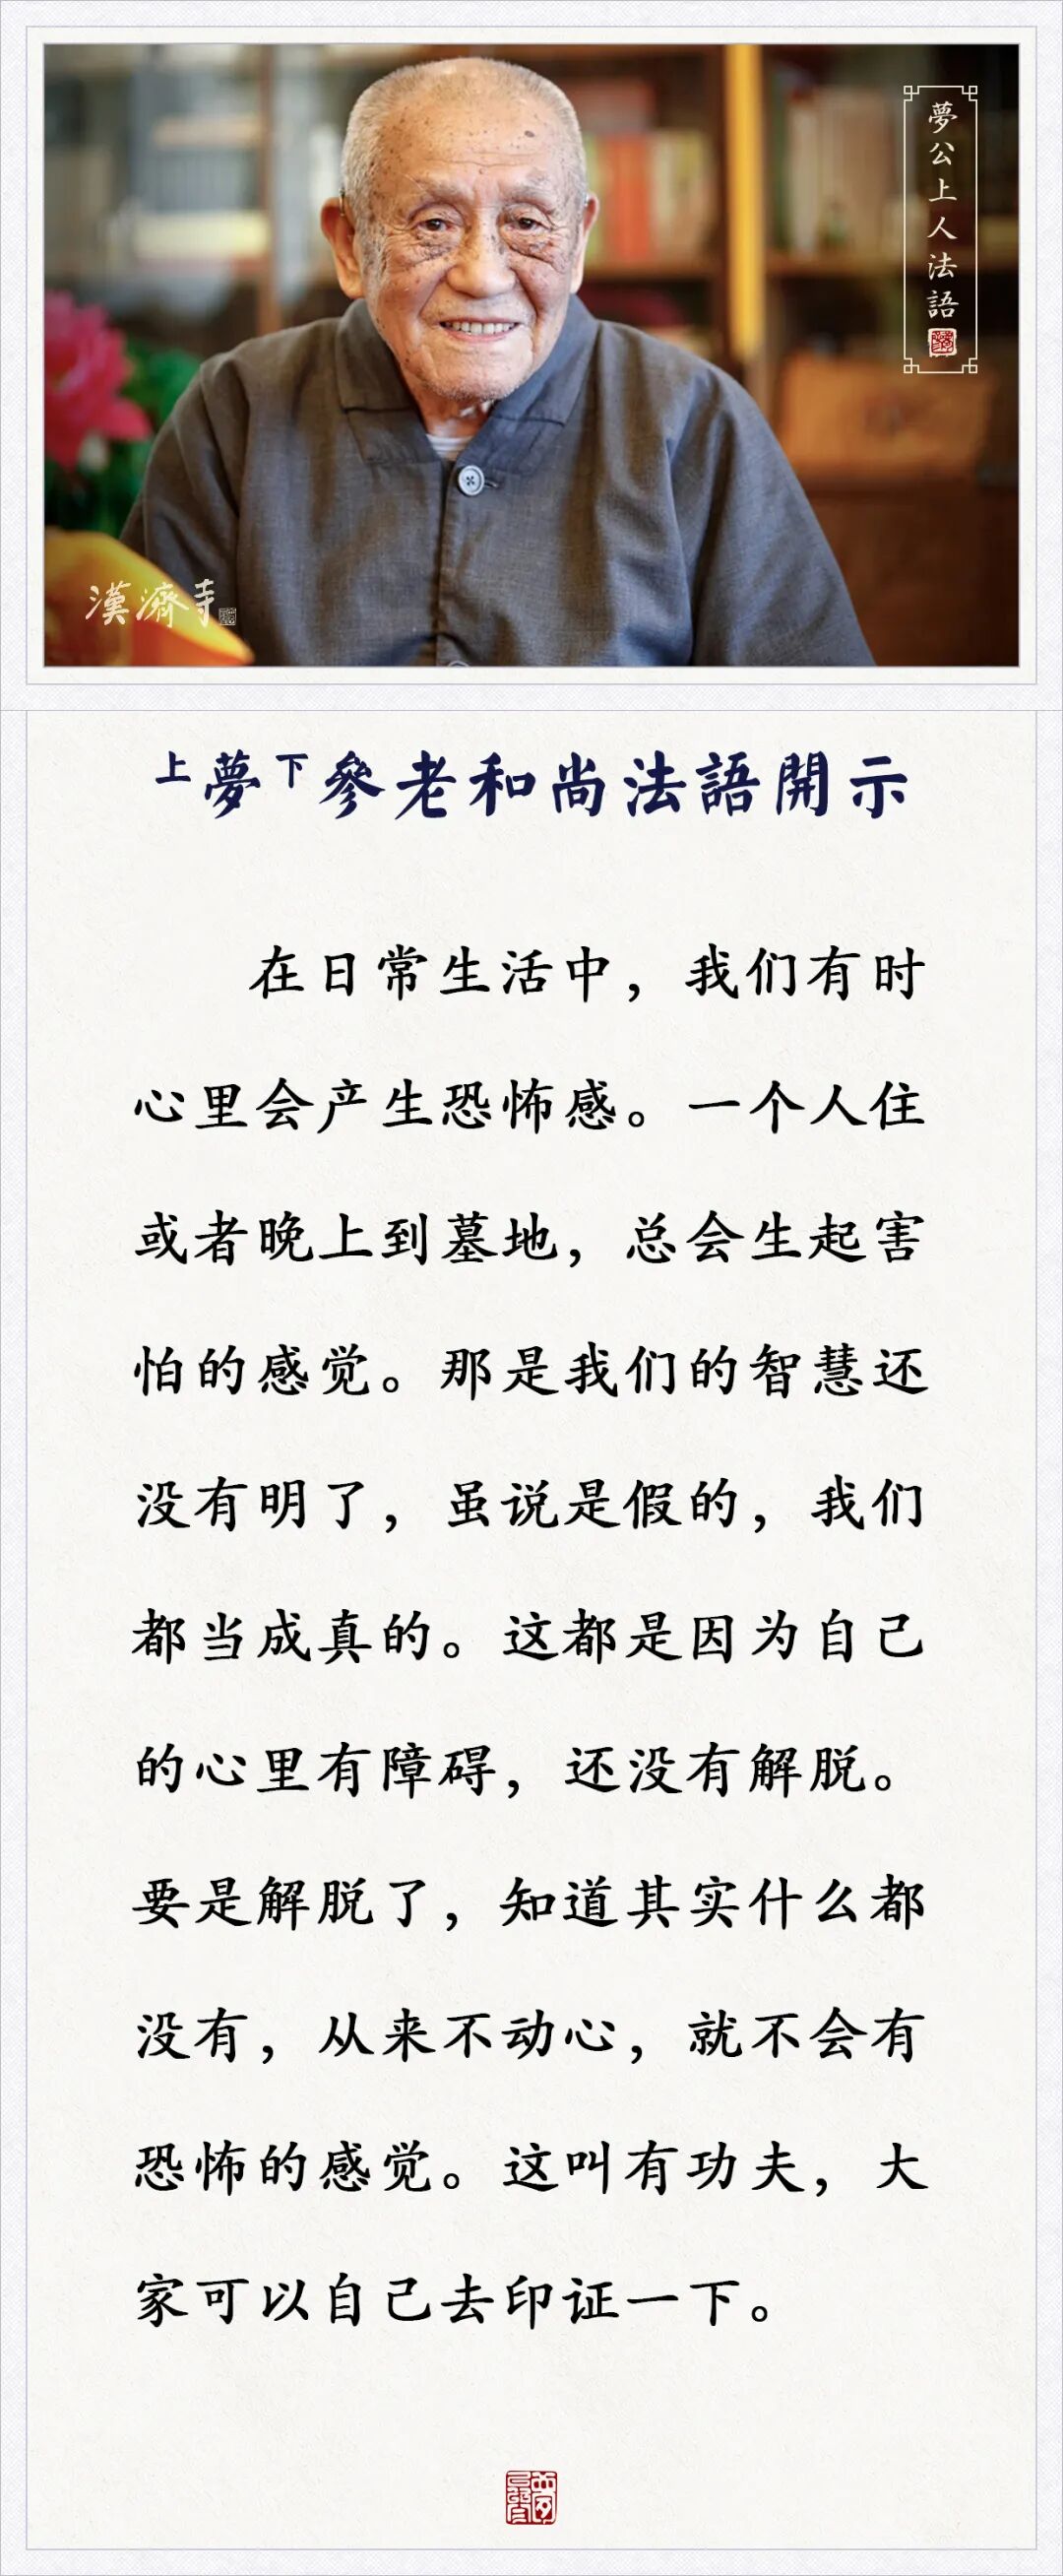 夢公上人法語
漢濟寺
上夢下參老和尚法語開示
在日常生活中，我们有时
心里会产生恐怖感。一个人住
或者晚上到墓地，总会生起害
怕的感觉。那是我们的智慧还
没有明了，虽说是假的，我们
都当成真的。这都是因为自己
的心里有障碍，还没有解脱。
要是解脱了，知道其实什么都
没有，从来不动心，就不会有
恐怖的感觉。这叫有功夫，大
家可以自己去印证一下。